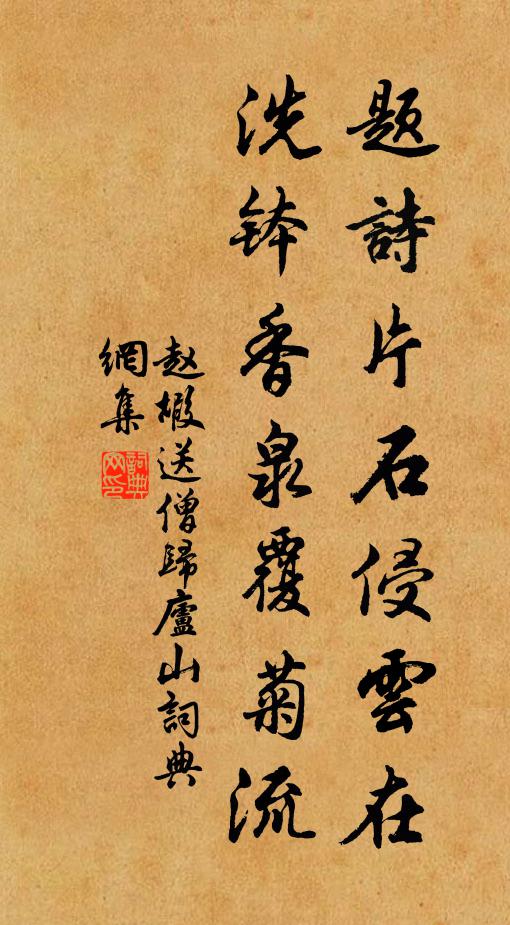 題詩片石侵雲在
洗鉢香泉覆菊流
赵嘏送僧歸廬山詞典
網集
詞典網印